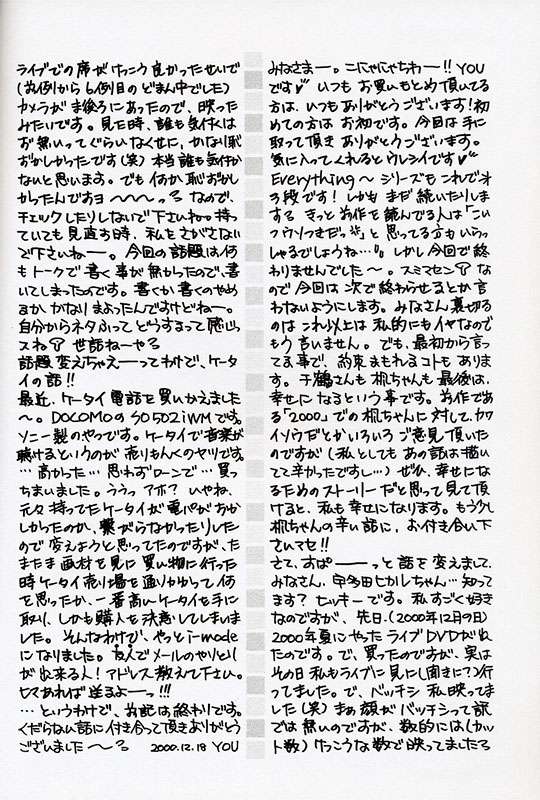 みなさまー。こにゃにゃちわー!! YOU
です♥ いつも お買いもとめ頂いてる
方は、いつもありがとうございます!初
めての方は お初です。今回は手に
取って頂き ありがとうございます。
気に入ってくれるとウレシイです♥
Everything〜 シリーズもこれでオ
3段です! しかも まだ続いたりしま
する きっと前作を読んでる人は「こい
つウソつきだっ」と思ってる方もいらっ
しゃるでしょうね…。しかし今回で終
わりませんでした〜。スミマセン な
ので今回は 次で終わらせるとか言
わないようにします。みなさん裏切る
のは これ以上は私的にもイヤなので
もう言いません。でも、最初から言っ
てる事で、約束まもれるコトもありま
す。千鶴さんも 梓ちゃんも最後は、
幸せになるという事です。前作であ
る「2000」での梓ちゃんに対して、カワ
イソウだとかいろいろ ご意見頂いた
のですが(私としても あの話は描い
てて辛かったですし…) ぜひ、幸せにな
るためのストーリーだと思って見て頂
けると、私も幸せになります。もう少し
梓ちゃんの辛い話に、お付き合い下
さいマセ!!
さて、すぱーーーっと話を変えまして、
みなさん、宇多田ヒカルちゃん…知って
ます? ヒッキーです。私すごく好き
なのですが、先日、(2000年12月の日)
2000年夏にやったライブDVDが出
たのです。で、買ったのですが、実は
その日 私もライブに見に(聞きに?)行
ってました。で、バッチシ 私映ってま
した(笑) まあ顔がバッチシって訳
では無いのですが、数的には(カッ
ト数) けっこうな数で映ってましたっ
ライブでの席がけっこう良かったせいで
(前列から6列目のどまん中でした)
カメラが ま後ろにあったので、映った
みたいです。見た時、誰も気付くは
ず無いってぐらいなくせに、かなり恥
ずかしかったです(笑) 本当誰も気付か
ないと思います。でも何か恥ずかし
かったんですヨ〜〜〜っ なので、
チェックしたりしないで下さいね。持っ
ていても見直す時、私をさがさない
で下さいねー。今回の話題は何
もトークで書く事が無かったので、書
いてしまったのです。書くか書くのやめ
るか、かなりまよったんですけどねー。
自分からネタふって どうするって感じっ
スね 世話ねーやっ
話題変えちゃえーーってわけで、ケータ
イの話!!
最近、ケータイ電話を買いかえました
〜。DOCOMOのSO502iWMです。
ソニー製のやつです。ケータイで音楽が
聴けるというのが売りもんくのヤツです
…高かった… 思わずローンで…買っ
ちまいました。ううっ アホ? いやね、
元々持ってたケータイが電パがおか
しかったのか、繋がらなかったりした
ので変えようと思ってたのですが、た
またま画材を見に買い物に行った
時ケータイ売り場を通りかかって何
を思ったか、一番高いケータイを手に
取り、しかも購入を決意してしまいま
した。そんなわけで、やっとi-mode
になりました。友人でメールのやりとり
が出来る人! アドレス教えて下さい。
ヒマあれば送るよーっ!!!
…というわけで、後記は終わりです。
くだらない話に付き合って頂きありがとう
ございました〜っ 2000.12.18 YOU